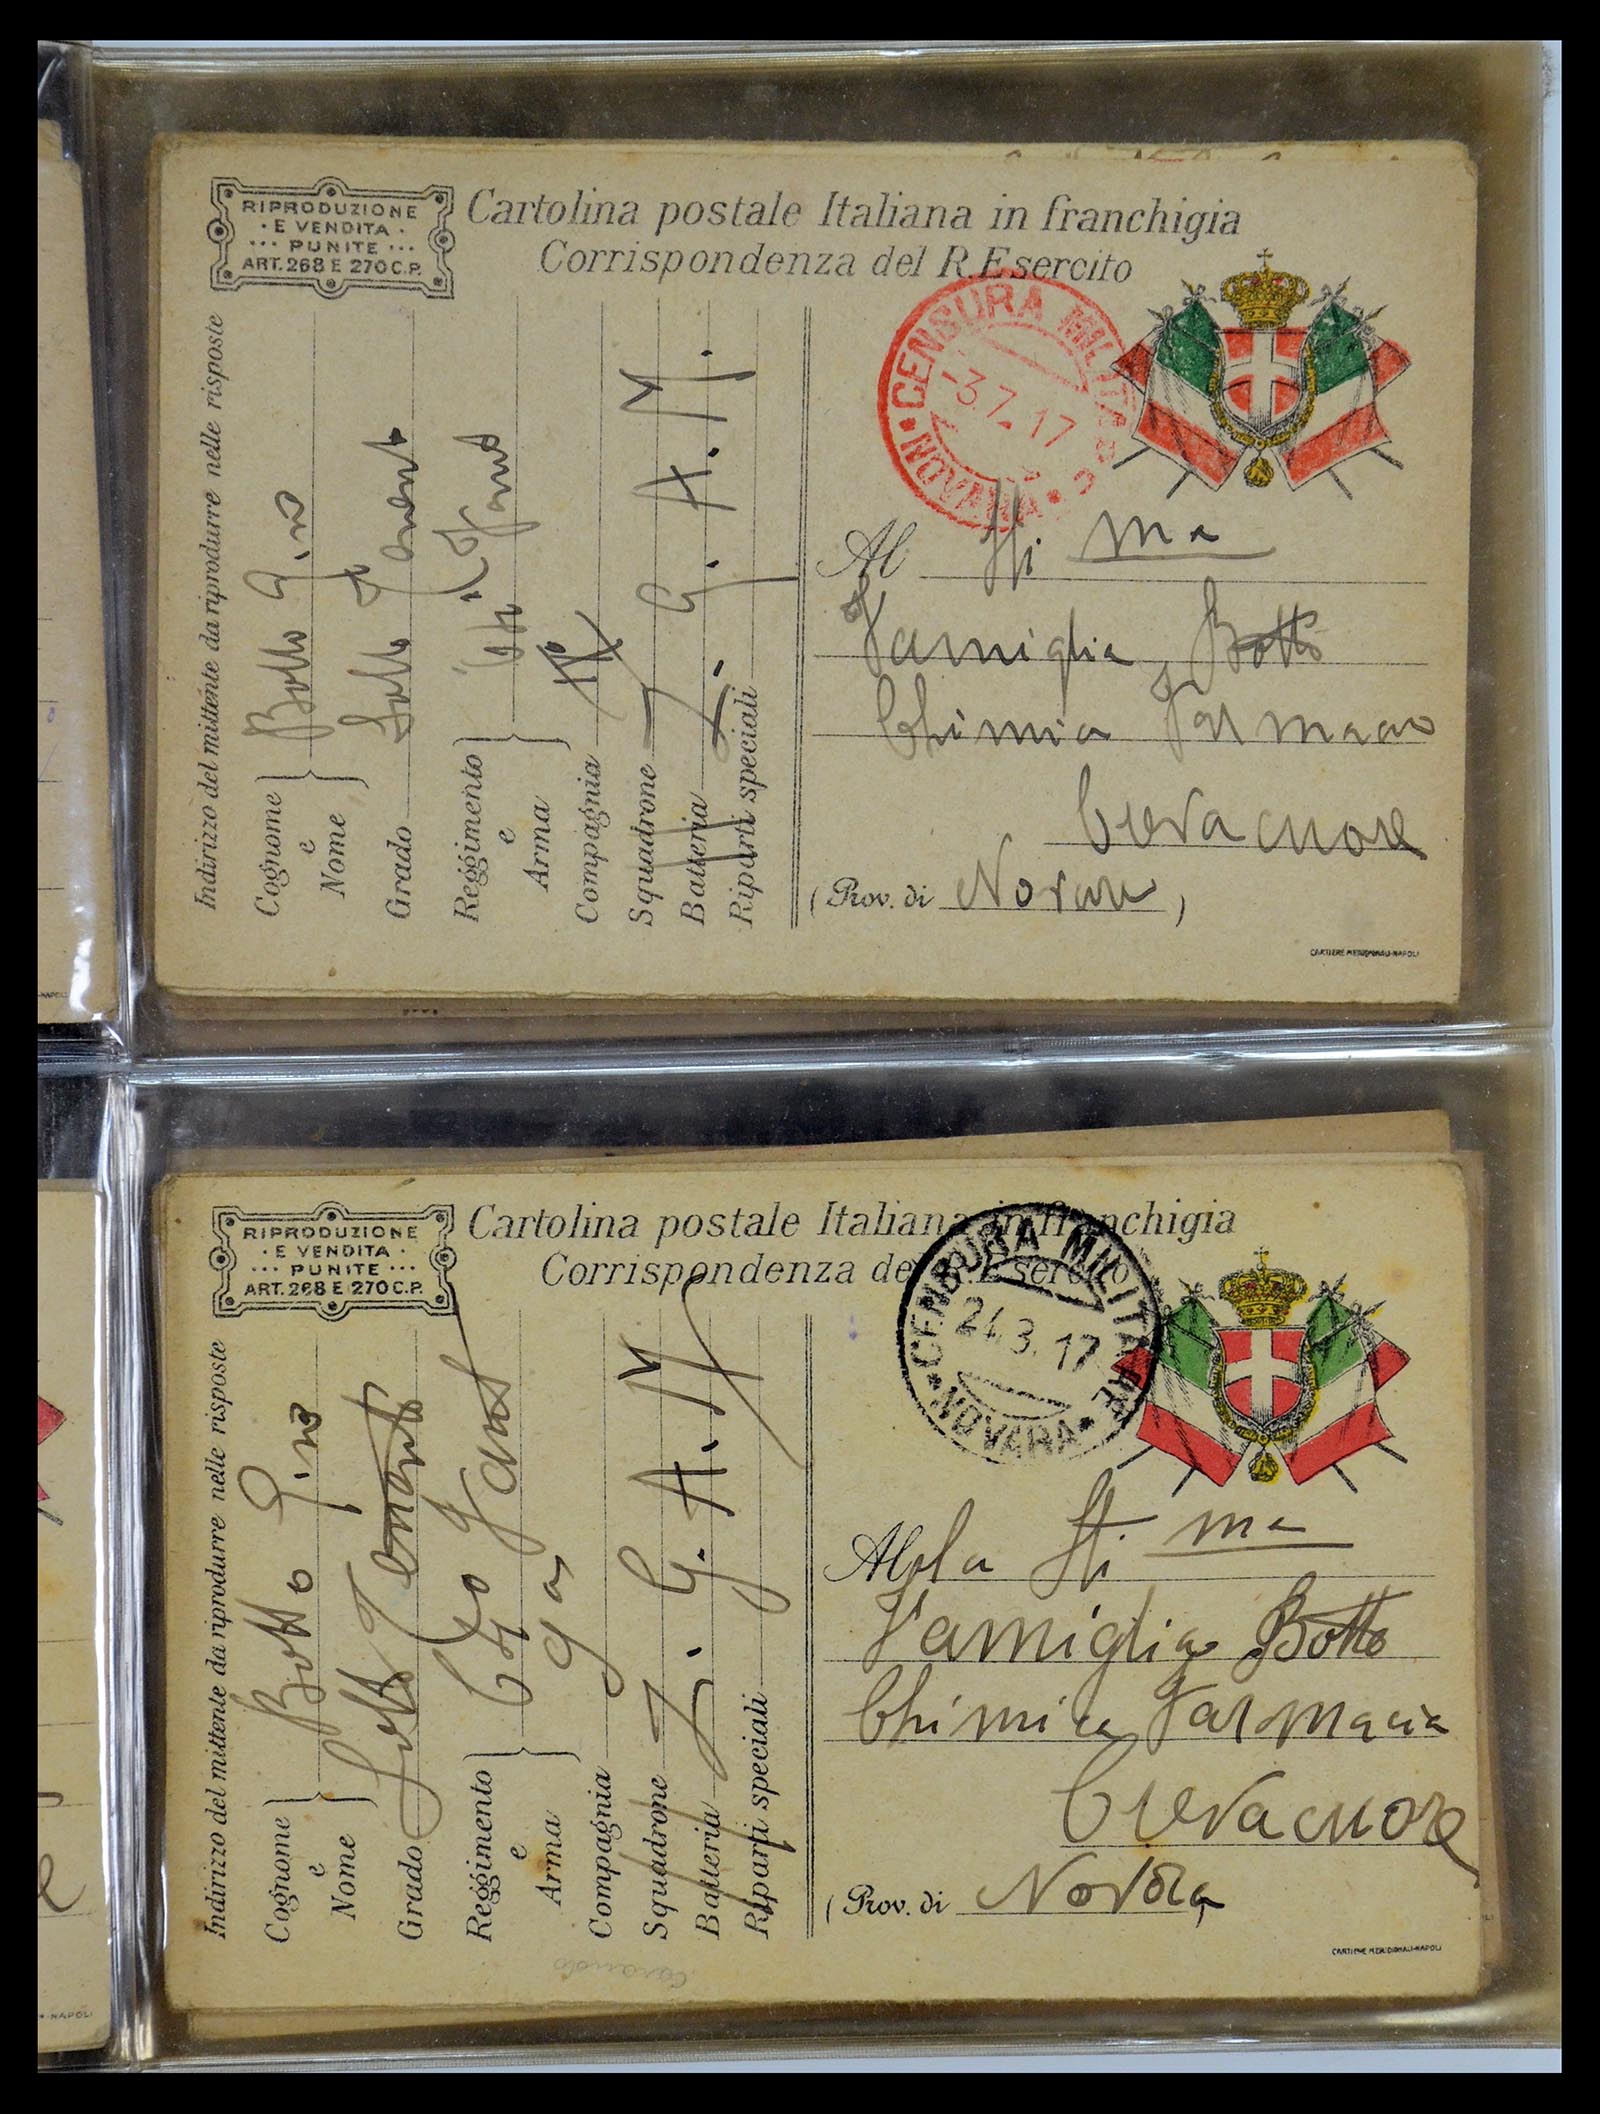 RIPRODUZIONE
· E VENDITA ·
··· PUNITE ···
ART. 268 E 270 C.P.
Cartolina postale Italiana in franchigia
Corrispondenza del R. Esercito
CENSURA MILITARE
-3.7.17
* NOVARA *
Indirizzo del mittente da riprodurre nelle risposte
Cognome e Nome } Botto Gino
Grado Sotto Tenente
Reggimento e Arma }
Compagnia
Squadrone
Batteria
Riparti speciali
Z. G. A. M.
Al Sti ma
Famiglia Botto
Chimica
Crevacuore
(Prov. di Novara)
CARTIERE MERIDIONALI-NAPOLI
RIPRODUZIONE
· E VENDITA ·
··· PUNITE ···
ART. 268 E 270 C.P.
Cartolina postale Italiana in franchigia
Corrispondenza del R. Esercito
CENSURA MILITARE
24.3.17
* NOVARA *
Indirizzo del mittente da riprodurre nelle risposte
Cognome e Nome } Botto Gino
Grado Sotto Tenente
Reggimento e Arma } 64o Fant
Compagnia 9a
Squadrone
Batteria
Riparti speciali
Z. G. A. M.
Alla Sti ma
Famiglia Botto
Chimica Farmacia
Crevacuore
(Prov. di Novara
CARTIERE MERIDIONALI-NAPOLI
-NAPOLI
-NAPOLI